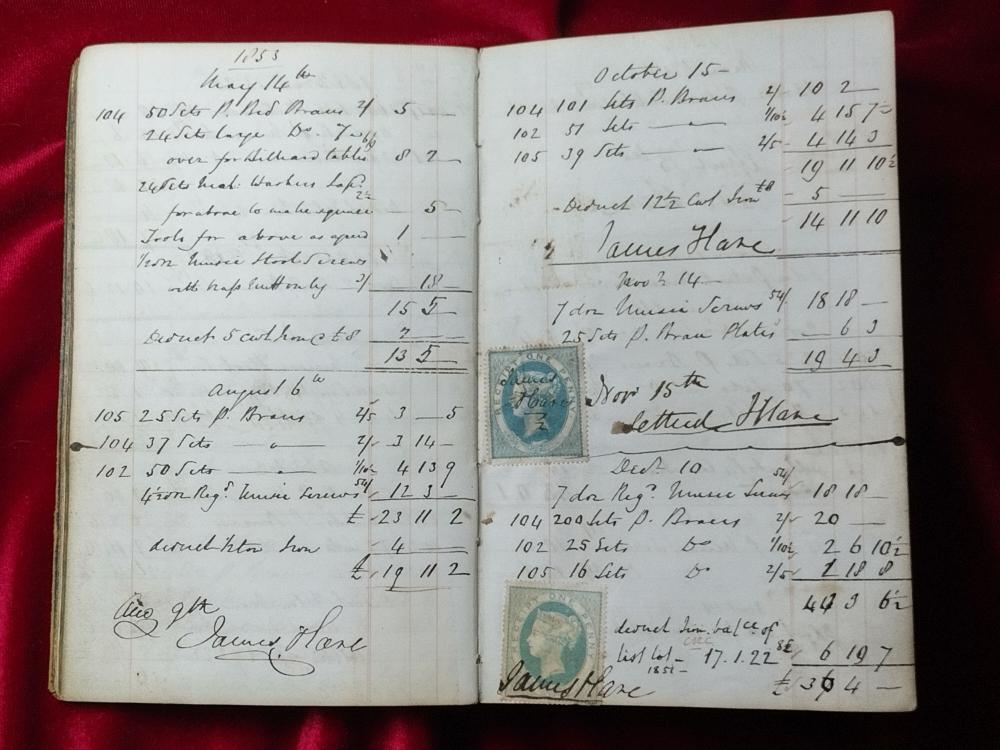 1853
May 14th
104 50 Sets P. Bed Braces 2/ 5 — —
24 Sets large Do. 7 6/9
over for Billiard tables 8 2 —
24 Sets Washers
2½
for above to make square 5 —
Tools for above as agreed 1 — —
Music Stool Screws
with only 3/ 18 —
15 5 —
Deduct 5 cwt Iron @ £8 2 — —
13 5 —
August 6th
105 25 Sets P. Braces 2/5 3 — 5
104 37 Sets — " — 2/ 3 14 —
102 50 Sets — " — 1/10½ 4 13 9
Regd. Music Screws 54/ 12 3 —
£ 23 11 2
deduct ½ ton Iron 4 — —
£ 19 11 2
Aug 9th
James Hare
October 15 —
104 101 Sets P. Braces 2/ 10 2 —
102 51 Sets — " 1/10½ 4 15 7½
105 39 Sets — " 2/5 4 14 3
19 11 10½
Deduct 12½ Cwt Iron £8 5 —
14 11 10
James Hare
Novr 14 —
7 doz Music Screws 54/ 18 18 —
25 Sets P. Brace Plates 6 3
19 4 3
RECEIPT ONE PENNY
James
Hare
Novr 15th
Settled J Hare
Decr 10
7 doz Regd. Music Screws 54/ 18 18 —
104 200 Sets P. Braces 2/ 20 —
102 25 Sets Do 1/10½ 2 6 10½
105 16 Sets Do 2/5 1 18 8
43 3 6½
deduct Iron balce of
last lot — 17.1.22 8£ 6 19 7
1851 —
£ 36 4 —
RECEIPT ONE PENNY
James Hare